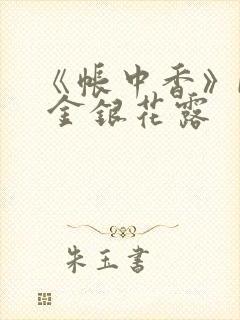 《帳中香》
金銀花露
朱玉書